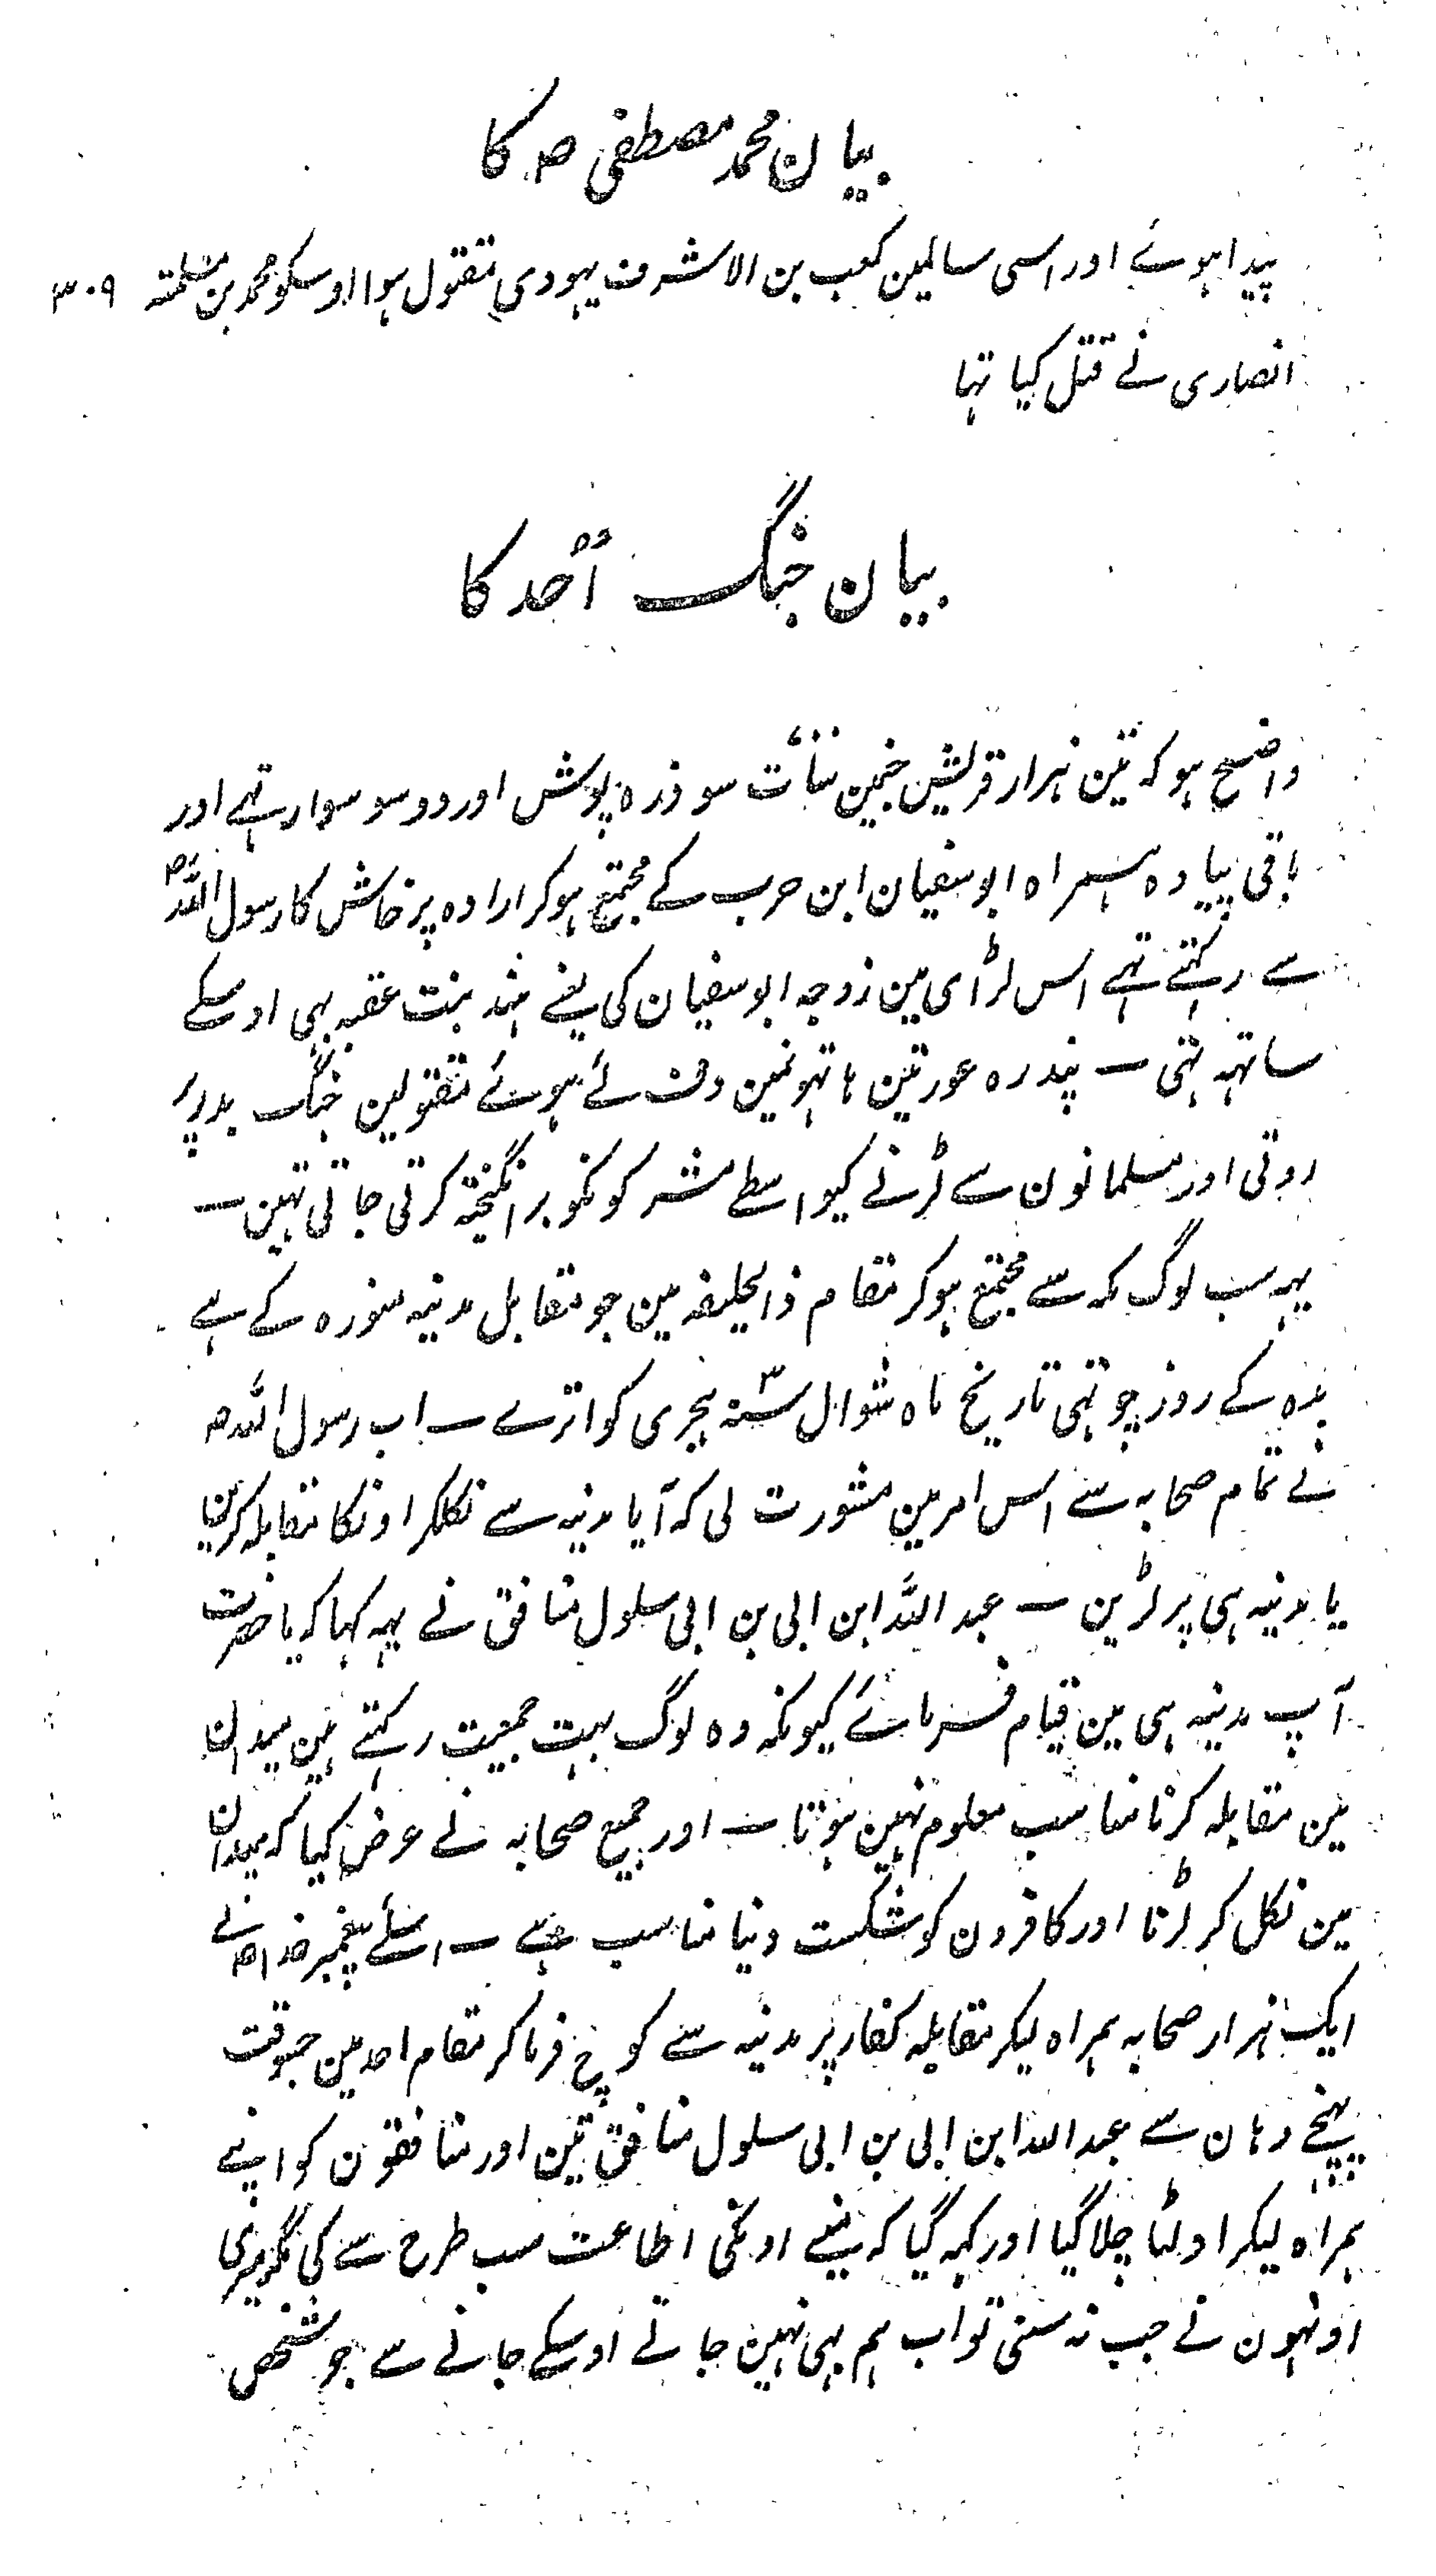 بیان محمد مصطفی ص کا
پیدا ہوئے اور اسی سالمین کعب بن الاشرف یہودی مقتول ہوا اوسکو محمد بن مسلمتہ ۳۰۹
انصاری نے قتل کیا تہا
بیان جنگ اُحد کا
واضح ہو کہ تین ہزار قریش جنمین سات سو زرہ پوش اور دو سو سوار تہے اور
باقی پیادہ ہمراہ ابو سفیان ابن حرب کے مجتمع ہو کر ارادہ پرخاش کا رسول اللہ ص
سے رکہتے تہے اس لڑائی مین زوجہ ابو سفیان کی یعنے ہند بنت عقبہ بہی اوسکے
ساتہہ تہی – پندرہ عورتین ہاتہونمین دف لئے ہوئے مقتولین جنگ بدر پر
روتی اور مسلمانون سے لڑنے کیواسطے مشرکونکو برانگیختہ کرتی جاتی تہین –
یہہ سب لوگ مکہ سے مجتمع ہو کر مقام ذالحلیفہ مین جو مقابل مدینہ منورہ کے ہے
بدہ کے روز چوتہی تاریخ ماہ شوال سنہ ۳ ہجری کو اترے – اب رسول اللہ ص
نے تمام صحابہ سے اس امر مین مشورت لی کہ آیا مدینہ سے نکلکر اونکا مقابلہ کرین
یا مدینہ ہی پر لڑین – عبد اللہ ابن ابی بن ابی سلول منافق نے یہہ کہا کہ یا حضرت
آپ مدینہ ہی مین قیام فرمائے کیونکہ وہ لوگ بہت جمیعت رکہتے ہین میدان
مین مقابلہ کرنا مناسب معلوم نہین ہوتا – اور جمیع صحابہ نے عرض کیا کہ میدان
مین نکل کر لڑنا اور کافرون کو شکست دینا مناسب ہے – اسلئے پیغمبر خدا ص نے
ایک ہزار صحابہ ہمراہ لیکر مقابلہ کفار پر مدینہ سے کوچ فرما کر مقام احد مین جسوقت
پہنچے وہان سے عبد اللہ ابن ابی بن ابی سلول منافق تین اور منافقون کو اپنے
ہمراہ لیکر اولٹا چلا گیا اور کہہ گیا کہ مینے اونکی اطاعت سب طرح سے کی مگر میری
اونہون نے جب نہ سنی تو اب ہم بہی نہین جاتے اوسکے جانے سے جو شخص